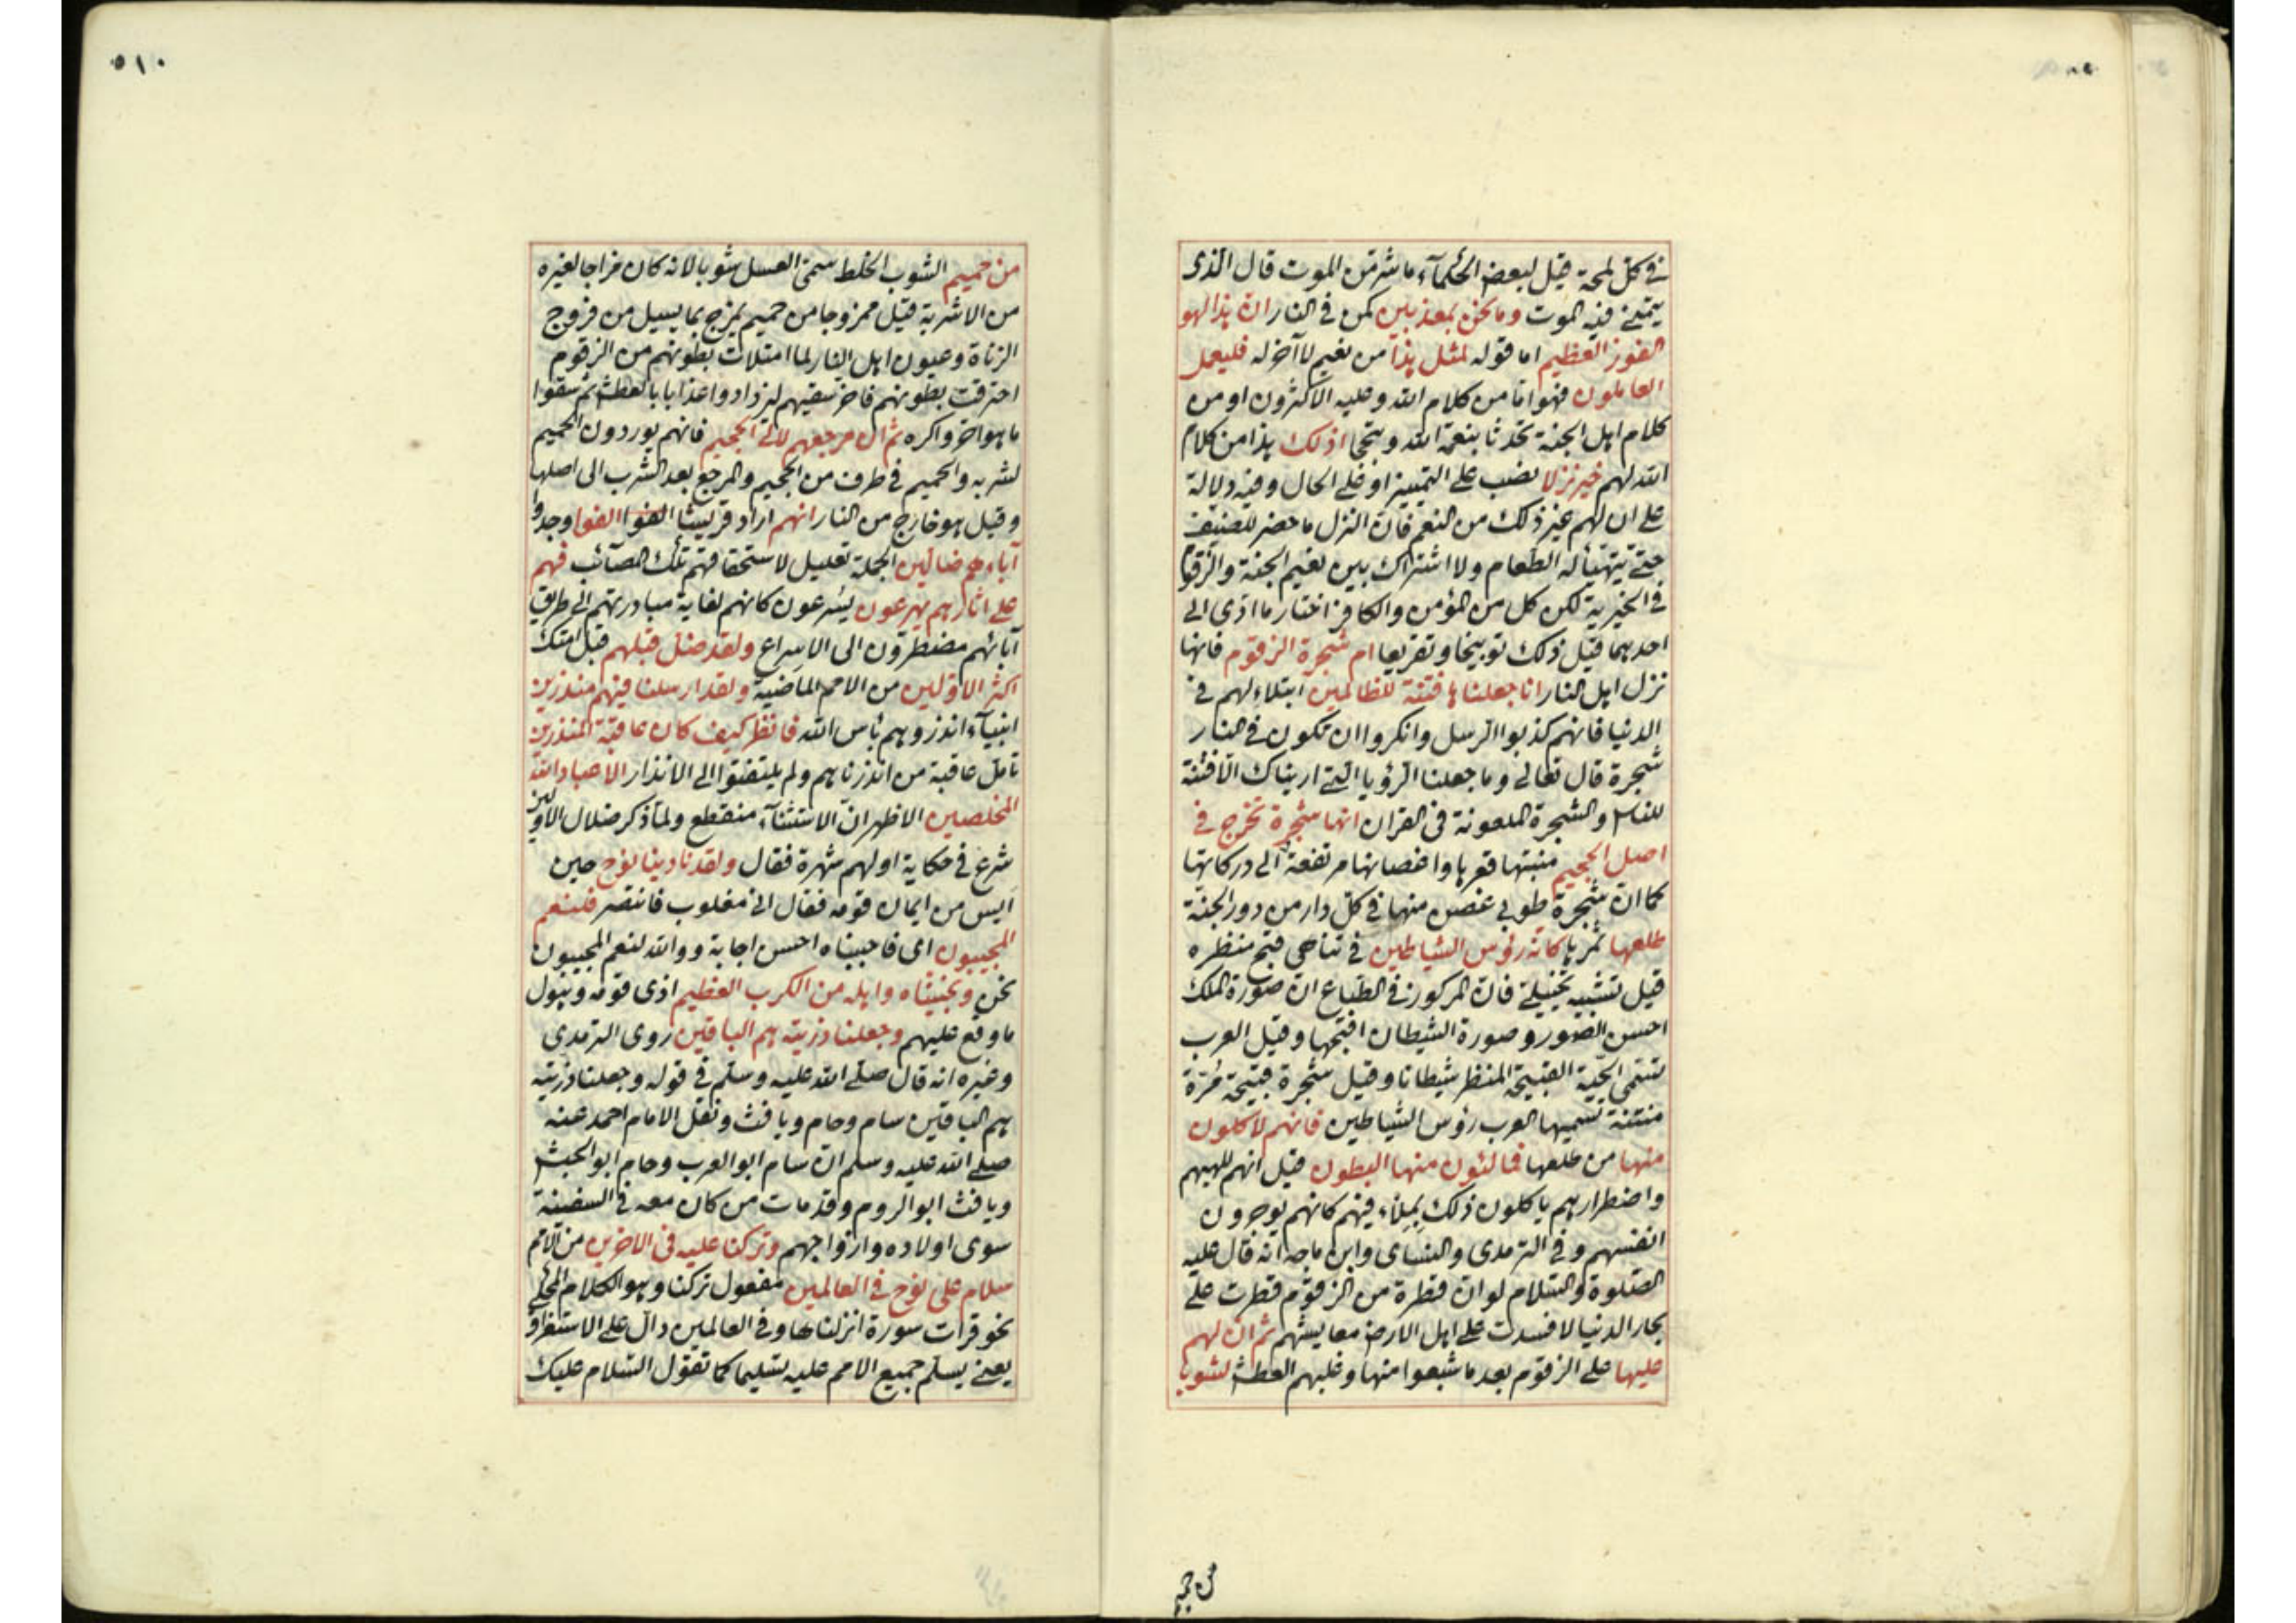 في كل لمحة قيل لبعض الحكمآء ما شر من الموت قال الذى
يتمنى فيه الموت وما نحن بمعذبين كمن في النار ان هذا لهو
الفوز العظيم اما قوله لمثل هذا من نعيم لا آخر له فليعمل
العاملون فهو اما من كلام الله وعليه الاكثرون او من
كلام اهل الجنة تحدثا بنعمة الله وتبجحا اذلك هذا من كلام
الله لهم خير نزلا نصب على التمييز او على الحال وفيه دلالة
على ان لهم غير ذلك من النعم فان النزل ما حضر للضيف
حتى يتهيأ له الطعام ولا اشتراك بين نعيم الجنة والزقوم
في الخيرية لكن كل من المؤمن والكافر اختار ما ادى الى
احدهما قيل ذلك توبيخا وتقريعا ام شجرة الزقوم فانها
نزل اهل النار انا جعلناها فتنة للظالمين ابتلاء لهم في
الدنيا فانهم كذبوا الرسل وانكروا ان تكون في النار
شجرة قال تعالى وما جعلنا الرؤيا التى اريناك الا فتنة
للناس والشجرة الملعونة في القران انها شجرة تخرج في
اصل الجحيم منبتها قعرها واغصانها مرتفعة الى دركاتها
كما ان شجرة طوبى غصن منها في كل دار من دور الجنة
طلعها ثمرها كانه رؤس الشياطين في تناهى قبح منظره
قيل تشبيه تخييلى فان المركوز في الطباع ان صورة الملك
احسن الصور وصورة الشيطان اقبحها وقيل العرب
تسمى الحية القبيحة المنظر شيطانا وقيل شجرة قبيحة مرة
منتنة تسميها العرب رؤس الشياطين فانهم لاكلون
منها من طلعها فمالئون منها البطون قيل انهم للهبهم
واضطرارهم ياكلون ذلك بملاء فيهم كانهم يوجرون
انفسهم وفى الترمدى والنساى وابن ماجه انه قال عليه
الصلوة والسلام لو ان قطرة من الزقوم قطرت على
بحار الدنيا لافسدت على اهل الارض معايشهم ثم ان لهم
عليها على الزقوم بعد ما شبعوا منها وغلبهم العطش لشوبا
من حميم
٥١٠
من حميم الشوب الخلط سمى العسل شوبا لانه كان مزاجا لغيره
من الاشربة قيل ممزوجا من حميم يمزج بما يسيل من فروج
الزناة وعيون اهل النار لما امتلات بطونهم من الزقوم
احترقت بطونهم فاخر سقيهم ليزدادوا عذابا بالعطش ثم سقوا
ما هو احر واكره ثم ان مرجعهم لالى الجحيم فانهم يوردون الحميم
لشربه والحميم في طرف من الجحيم والمرجع بعد الشرب الى اصلها
وقيل هو خارج من النار انهم اراد قريشا الفوا الفوا وجدوا
آباءهم ضالين الجملة تعليل لاستحقاقهم تلك المصآئب فهم
على اثارهم يهرعون يسرعون كانهم لغاية مبادرتهم الى طريق
آبائهم مضطرون الى الاسراع ولقد ضل قبلهم قبل امتك
اكثر الاولين من الامم الماضية ولقد ارسلنا فيهم منذرين
انبيآء انذروهم باس الله فانظر كيف كان عاقبة المنذرين
تامل عاقبة من انذرناهم ولم يلتفتوا الى الانذار الا عباد الله
المخلصين الاظهر ان الاستثنآء منقطع ولما ذكر ضلال الاولين
شرع في حكاية اولهم شهرة فقال ولقد نادينا نوح حين
ايس من ايمان قومه فقال انى مغلوب فانتصر فلنعم
المجيبون اى فاجبناه احسن اجابة ووالله لنعم المجيبون
نحن ونجيناه واهله من الكرب العظيم اذى قومه وهول
ما وقع عليهم وجعلنا ذريته هم الباقين روى الترمدى
وغيره انه قال صلى الله عليه وسلم في قوله وجعلنا ذريته
هم الباقين سام وحام ويافث ونقل الامام احمد عنه
صلى الله عليه وسلم ان سام ابو العرب وحام ابو الحبش
ويافث ابو الروم وقد مات من كان معه في السفينة
سوى اولاده وازواجهم وتركنا عليه في الاخرين من الامم
سلام على نوح في العالمين مفعول تركنا وهو الكلام المحكى
نحو قرات سورة انزلناها وفى العالمين دال على الاستغراق
يعنى يسلم جميع الامم عليه تسليما كما تقول السلام عليك